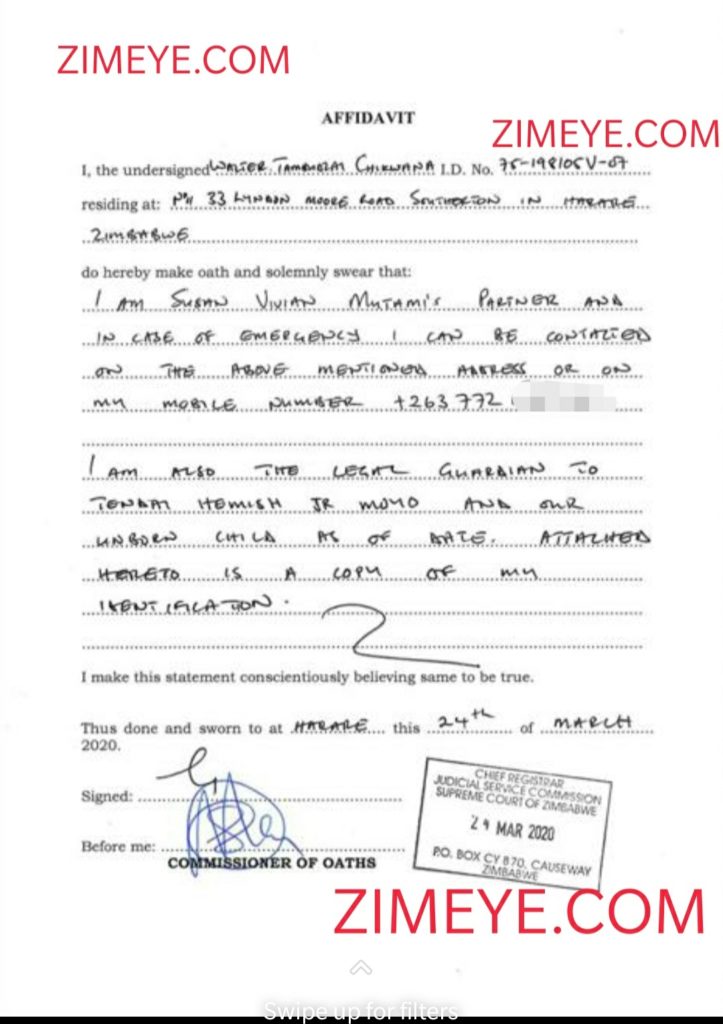 ZIMEYE.COM
AFFIDAVIT
ZIMEYE.COM
I, the undersigned WALTER TAMBUDZAI CHIKWANA I.D. No. 75-198105V-07
residing at: No 33 LYNDON MOORE ROAD SOUTHERTON IN HARARE
ZIMBABWE
do hereby make oath and solemnly swear that:
I AM SUSAN VIVIAN MUTAMI'S PARTNER AND
IN CASE OF EMERGENCY I CAN BE CONTACTED
ON THE ABOVE MENTIONED ADDRESS OR ON
MY MOBILE NUMBER +263 772
I AM ALSO THE LEGAL GUARDIAN TO
TENDAI HEMISH JR MOYO AND OUR
UNBORN CHILD AS OF DATE. ATTACHED
HERETO IS A COPY OF MY
IDENTIFICATION.
I make this statement conscientiously believing same to be true.
Thus done and sworn to at HARARE this 24th of MARCH
2020.
Signed:
Before me:
COMMISSIONER OF OATHS
CHIEF REGISTRAR
JUDICIAL SERVICE COMMISSION
SUPREME COURT OF ZIMBABWE
24 MAR 2020
P.O. BOX CY 870, CAUSEWAY
ZIMBABWE
ZIMEYE.COM
Swipe up for filters